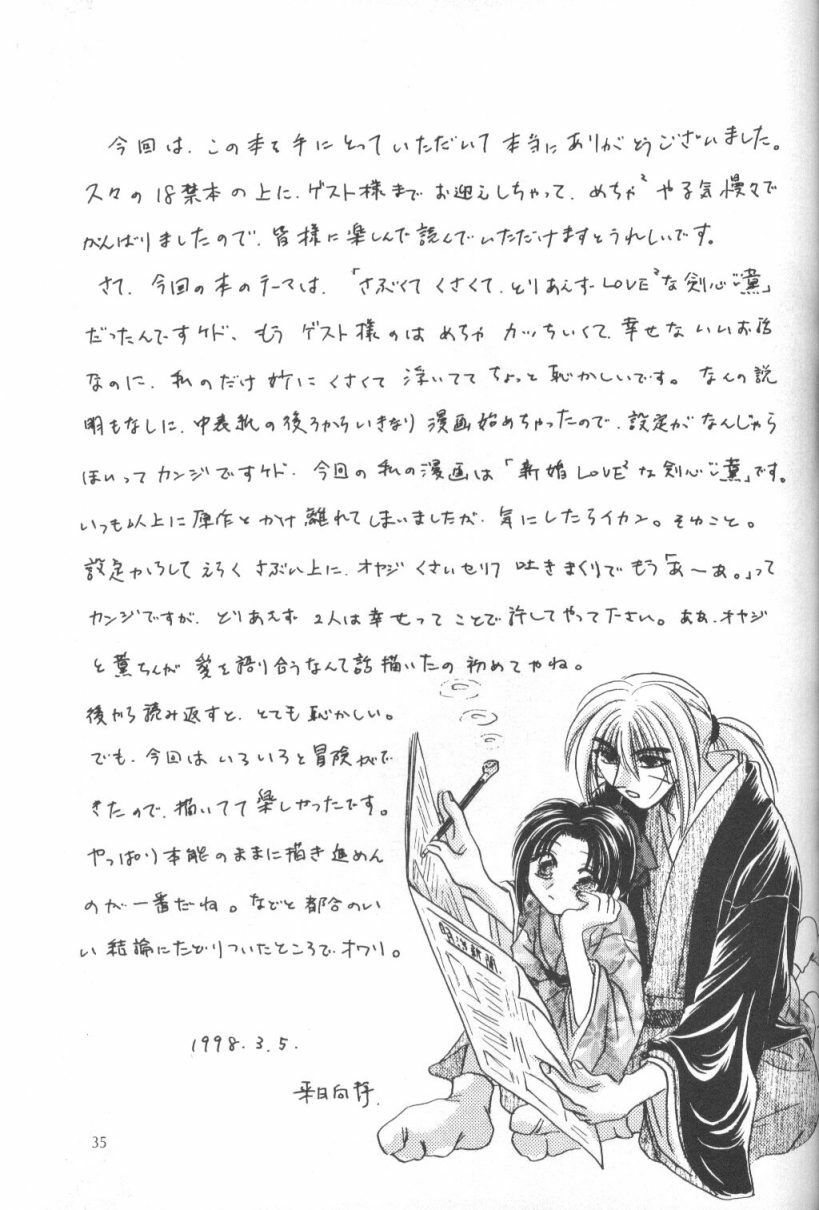 今回は、この本を手にとっていただいて本当にありがとうございました。
久々の18禁本の上に、ゲスト様までお迎えしちゃって、めちゃ²やる気慢々で
がんばりましたので、皆様に楽しんで読んでいただけますとうれしいです。
さて、今回の本のテーマは、「さぶくてくさくて、とりあえずLOVE²な剣心と薫」
だったんですケド、もうゲスト様のはめちゃカッちいくて、幸せないいお話
なのに、私のだけ妙にくさくて浮いててちょっと恥かしいです。なんの説
明もなしに、中表紙の後ろからいきなり漫画始めちゃったので、設定がなんじゃら
ほいってカンジですケド、今回の私の漫画は「新婚LOVE²な剣心と薫」です。
いつも以上に原作とかけ離れてしまいましたが、気にしたらイカン。そゆこと。
設定からしてえろくさぶい上に、オヤジくさいセリフ吐きまくりでもう「あ〜あ。」って
カンジですが、とりあえず2人は幸せってことで許してやって下さい。ああ、オヤジ
と薫ちんが愛を語り合うなんて話描いたの初めてやね。
後から読み返すと、とても恥かしい。
でも、今回はいろいろと冒険がで
きたので、描いてて楽しかったです。
やっぱり本能のままに描き進めん
のが一番だね。などと都合のい
い結論にたどりついたところで、オワリ。
1998.3.5.
新聞
35